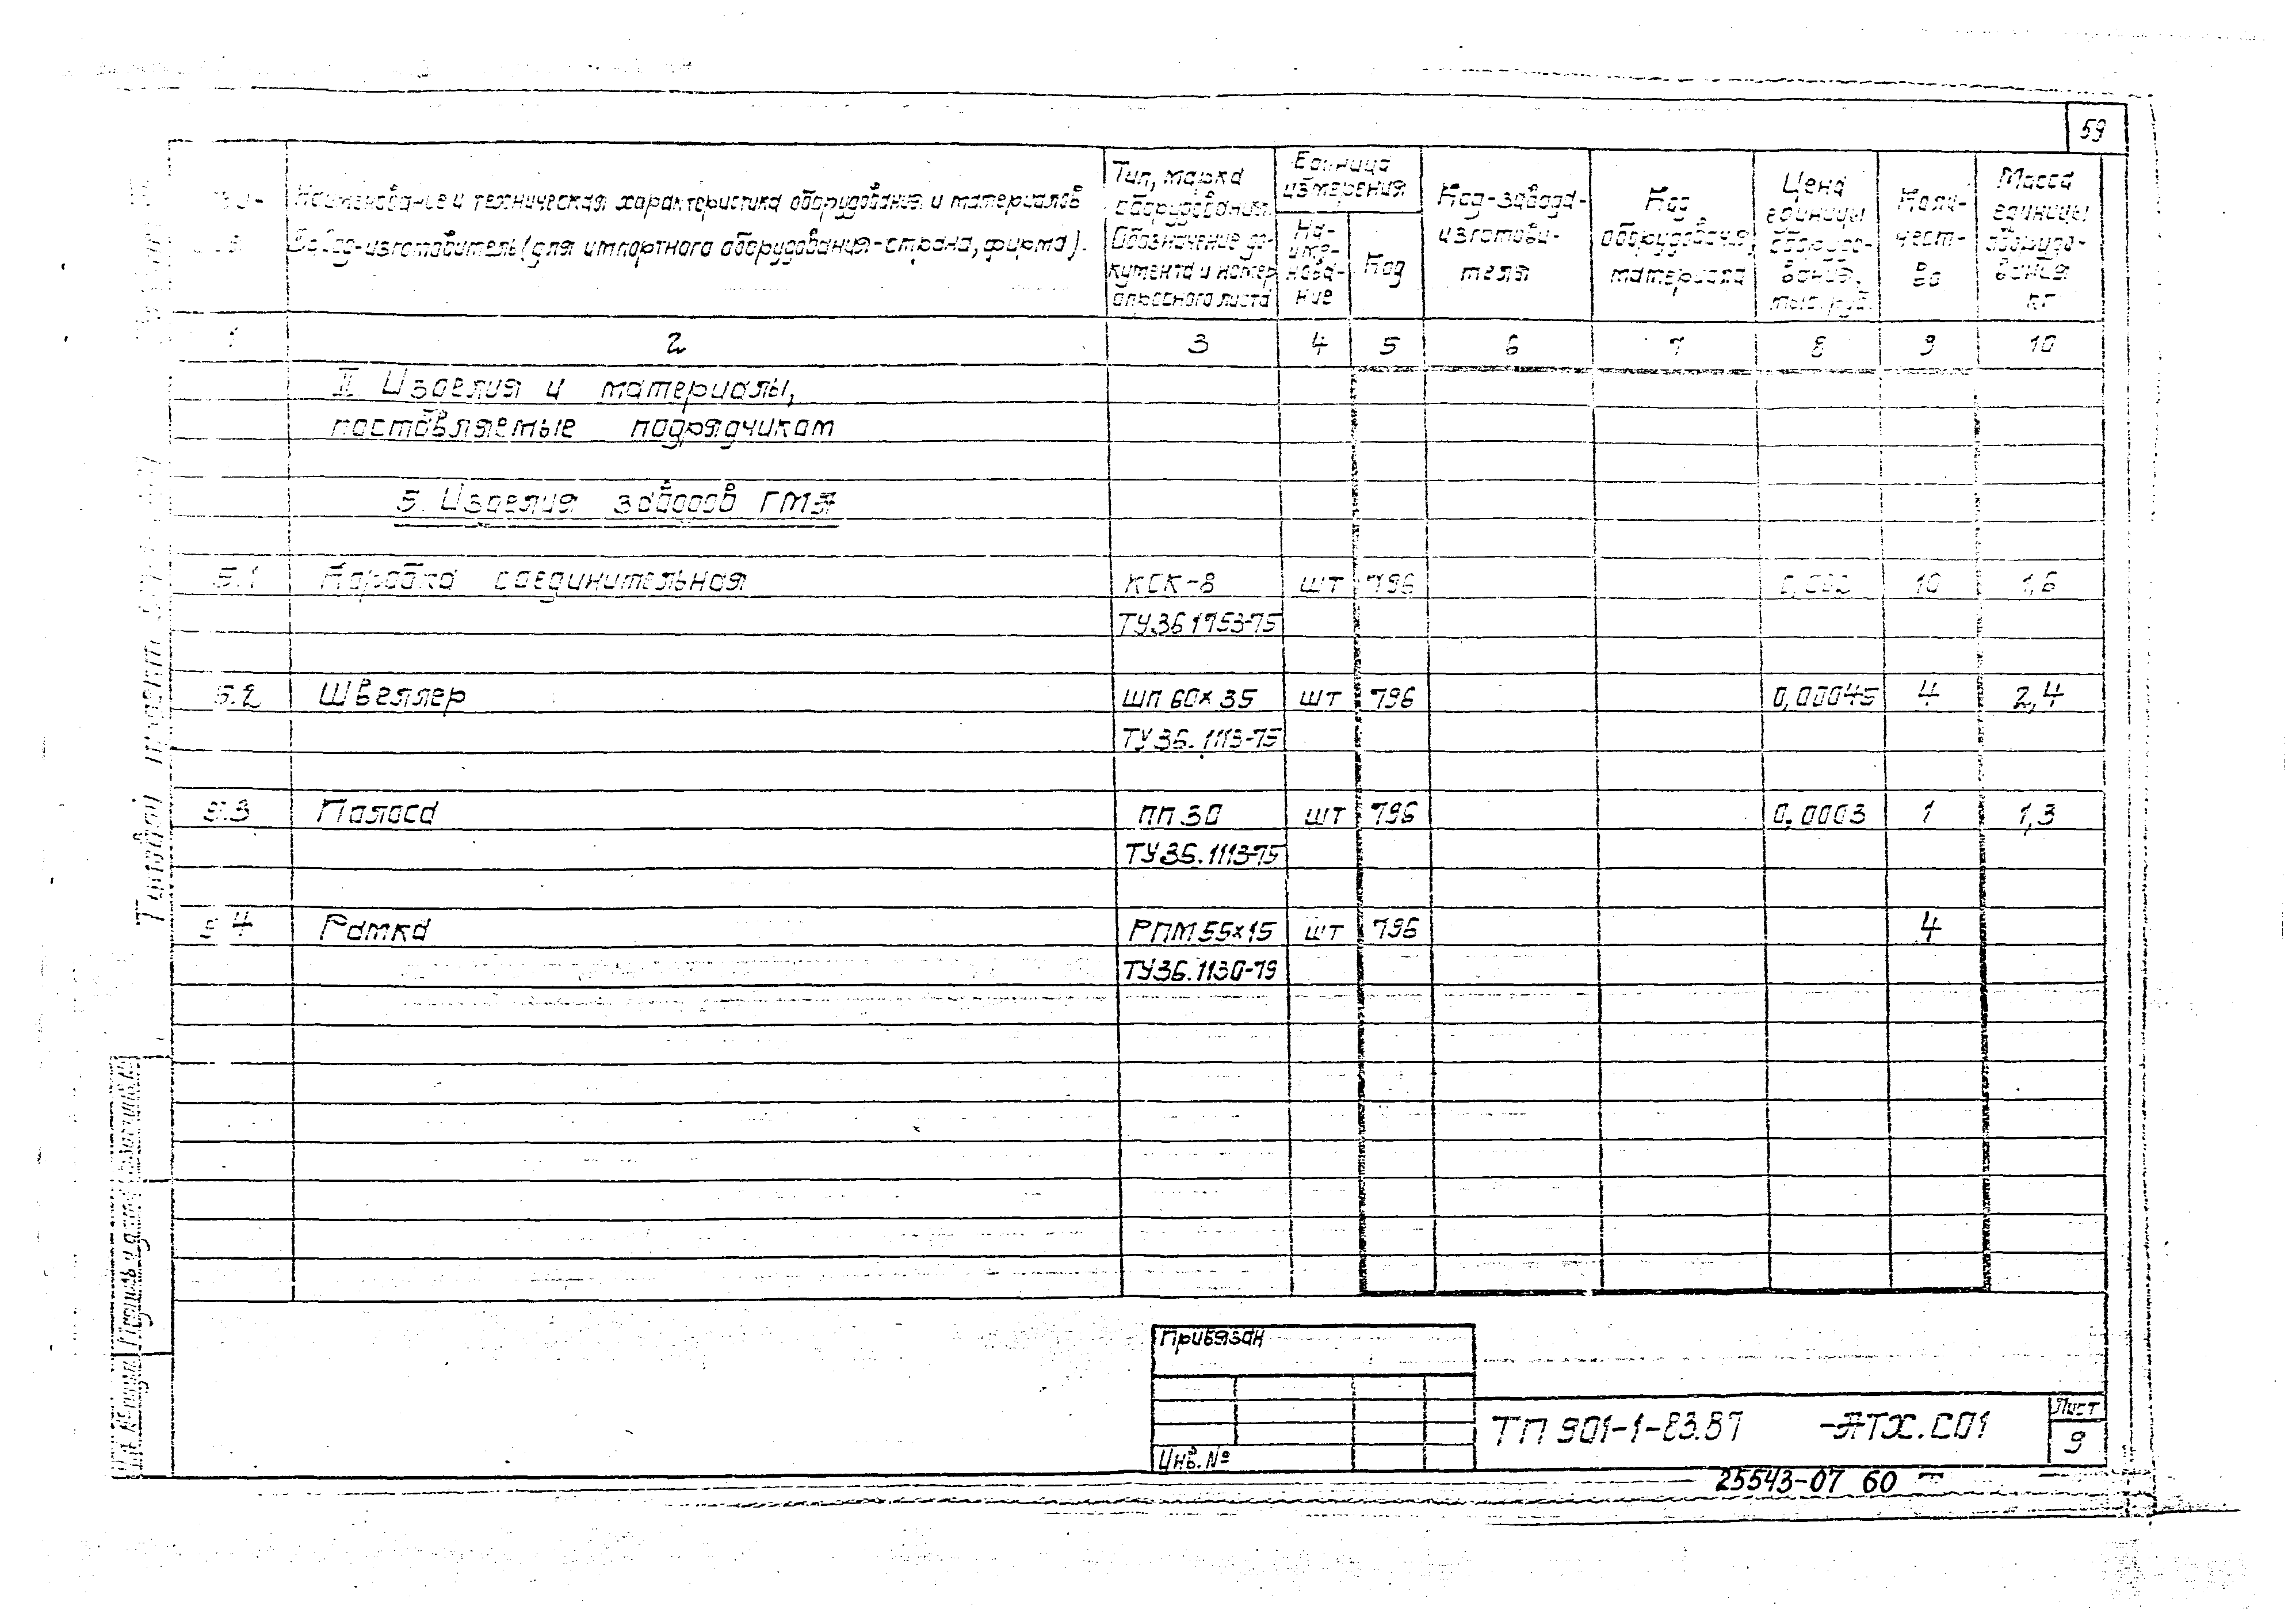 59
Наименование и техническая характеристика оборудования и материалов
Завод-изготовитель (для импортного оборудования-страна, фирма).
Тип, марка
оборудования.
Обозначение до-
кумента и номер
опросного листа
Единица
измерения
На-
име-
нова-
ние
Код
Код-завода-
изготови-
теля
Код
оборудования,
материала
Цена
единицы
оборудо-
вания,
тыс.руб.
Коли-
чест-
во
Масса
единицы
оборудо-
вания
кг
1 2 3 4 5 6 7 8 9 10
II. Изделия и материалы,
поставляемые подрядчикам
5. Изделия заводов ГМА
5.1 Коробка соединительная КСК-8 шт 796 10 1,6
ТУ36 1753-75
5.2 Швеллер ШП 60х35 шт 796 0,00045 4 2,4
ТУ 36. 1113-75
5.3 Полоса ПП 30 шт 796 0,0003 1 1,3
ТУ 36. 1113-75
5 4 Рамка РПМ 55х15 шт 796 4
ТУ36. 1130-79
Типовой проект
Инв. № подл. Подпись и дата
Привязан
Инв. №
ТП 901-1-83.87 -АТХ.СО1
Лист
9
25543-07 60